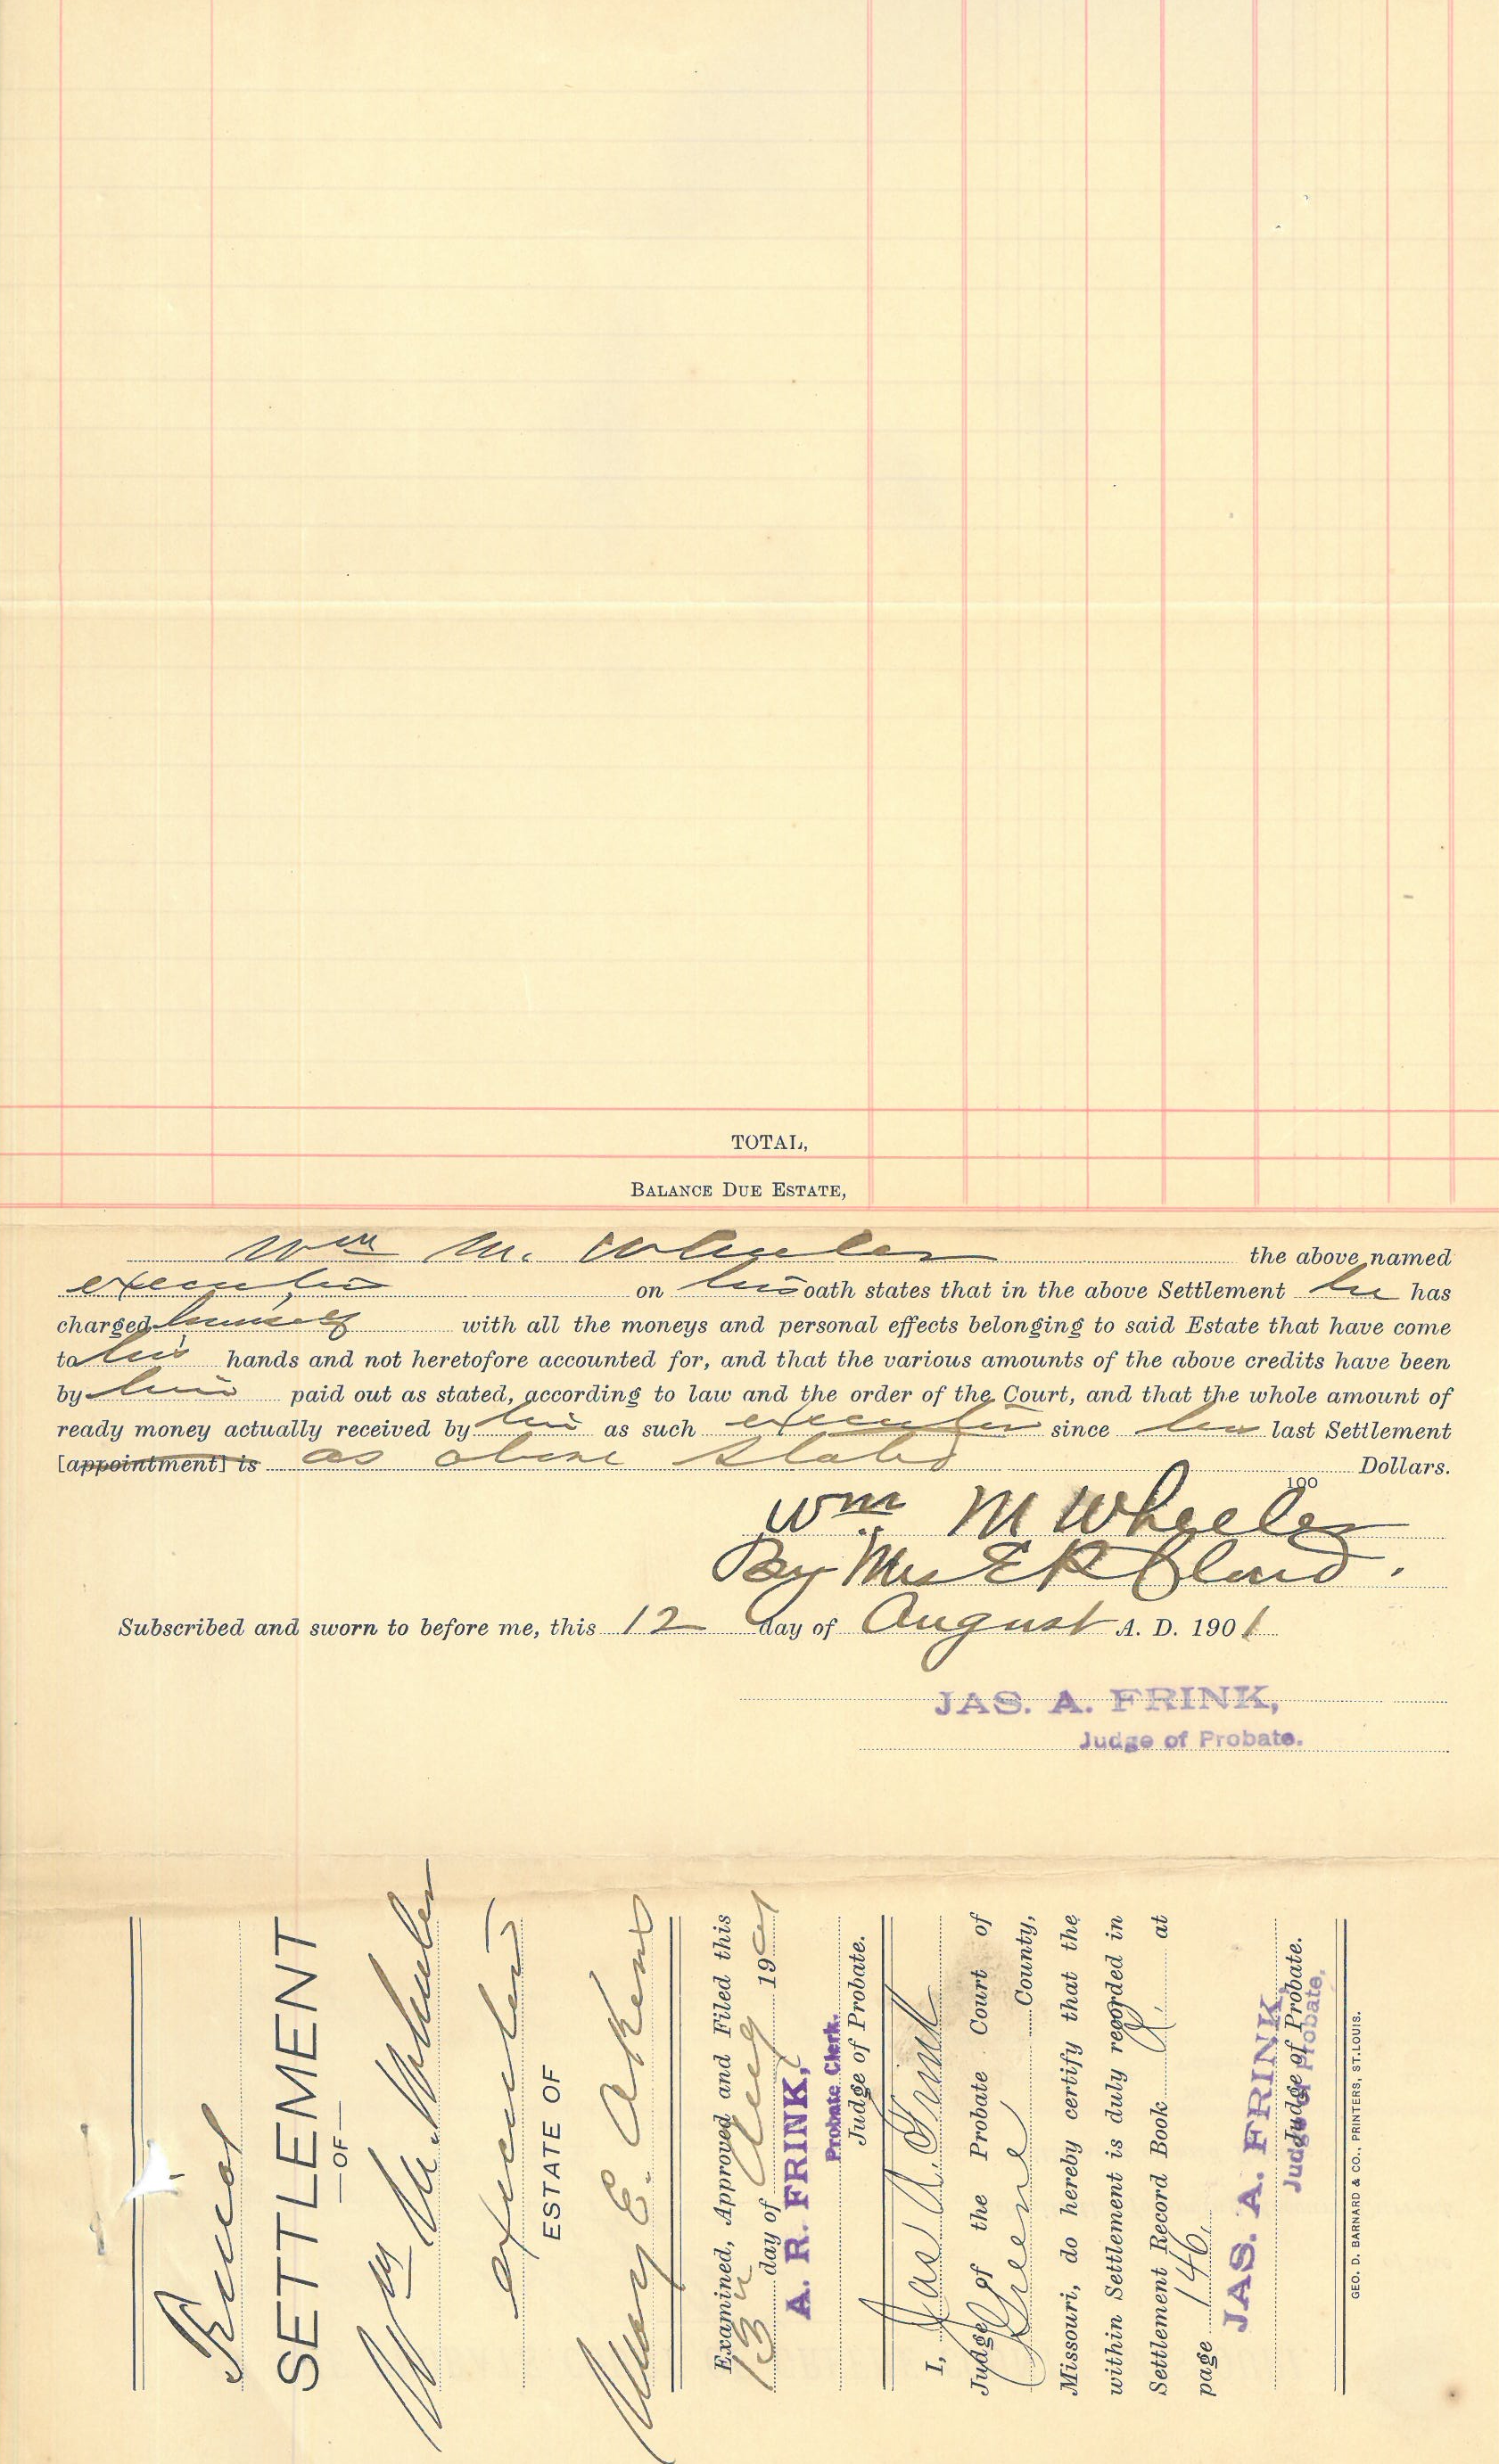 TOTAL,
BALANCE DUE ESTATE,
Wm M. Wheeler the above named
executor on his oath states that in the above Settlement he has
charged himself with all the moneys and personal effects belonging to said Estate that have come
to his hands and not heretofore accounted for, and that the various amounts of the above credits have been
by him paid out as stated, according to law and the order of the Court, and that the whole amount of
ready money actually received by him as such executor since his last Settlement
[appointment] is as above stated Dollars.
100
Wm M Wheeler
By Mrs E R
Subscribed and sworn to before me, this 12 day of August A. D. 1901
JAS. A. FRINK,
Judge of Probate.
Final
SETTLEMENT
—OF—
Wm M. Wheeler
executor
ESTATE OF
Mary E. Akens
Examined, Approved and Filed this
13 day of Aug 1901
A. R. FRINK,
Probate Clerk.
Judge of Probate.
I, Jas A. Frink
Judge of the Probate Court of
Greene County,
Missouri, do hereby certify that the
within Settlement is duly recorded in
Settlement Record Book at
page 146.
JAS. A. FRINK,
Judge of Probate.
Judge of Probate.
GEO. D. BARNARD & CO., PRINTERS, ST. LOUIS.